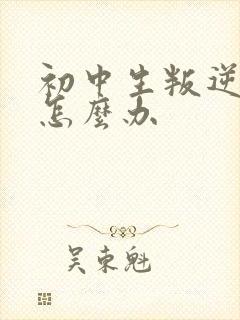 初中生叛逆
怎麼办
吴东魁